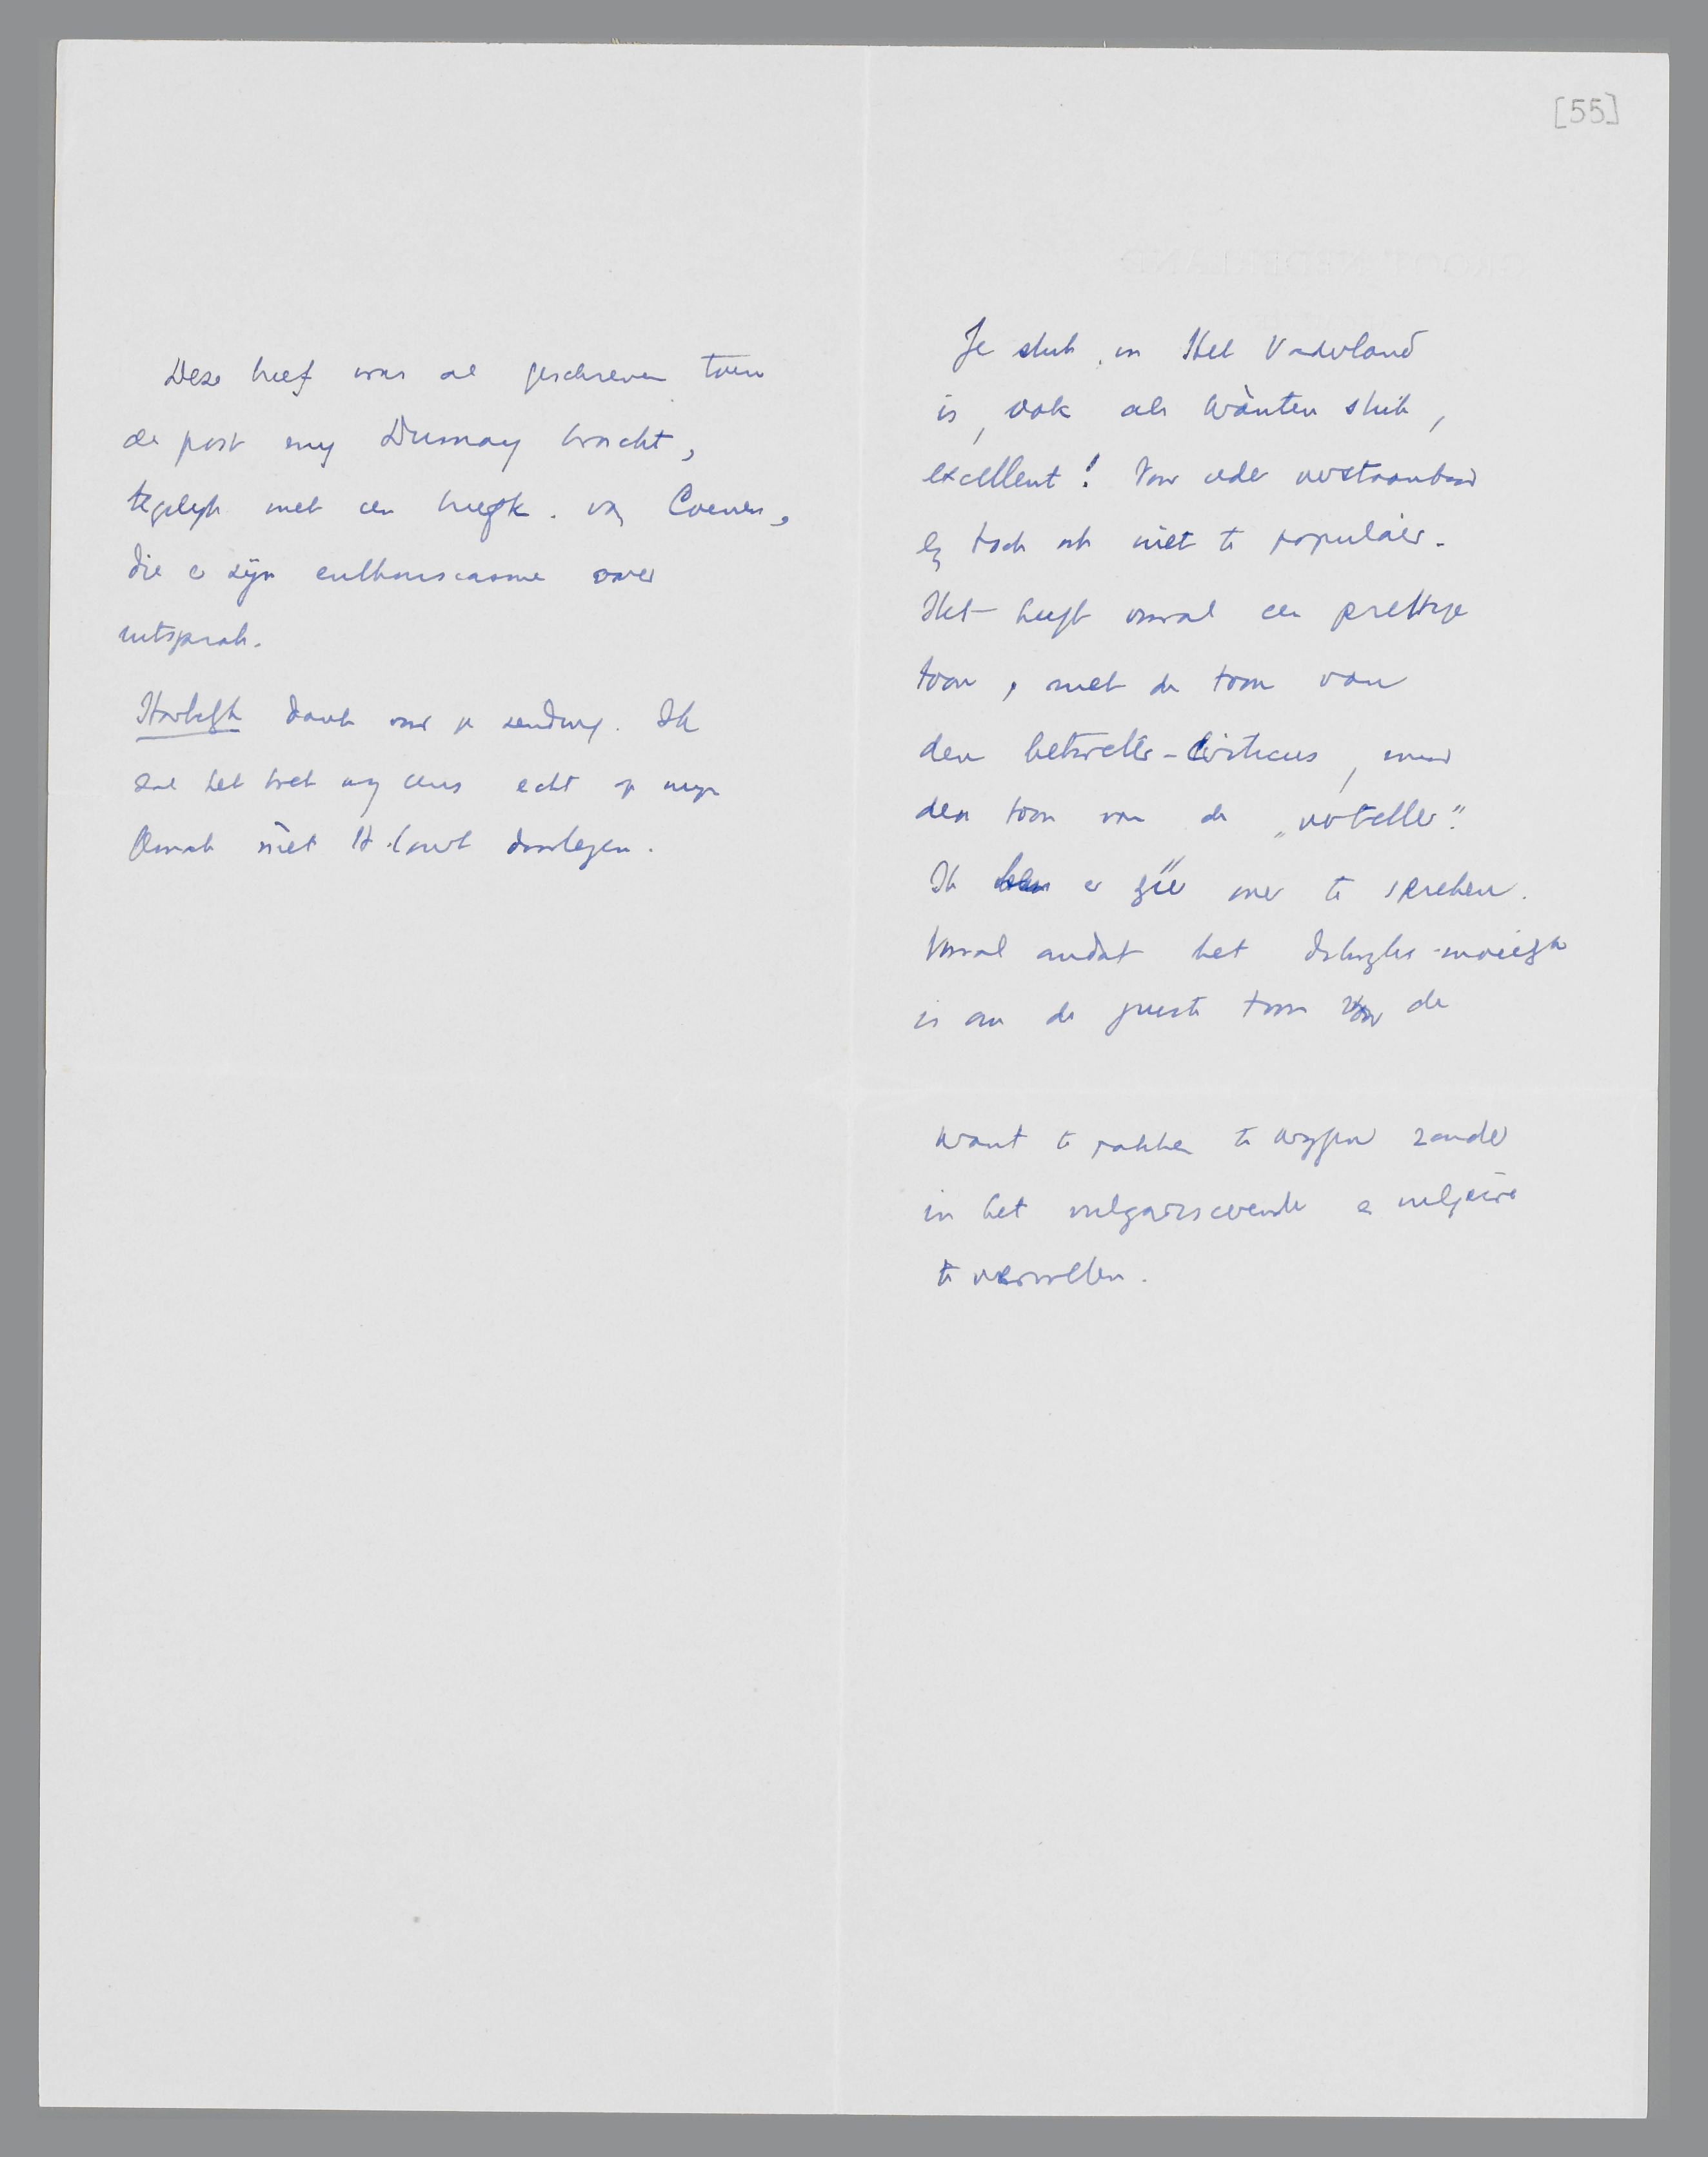 [55]
Deze brief was al geschreven toen
de post mij Dumay bracht,
tegelijk met een briefk. van Coenen,
die er zijn enthousiasme over
uitsprak.
Hartelijk dank voor je zending. Ik
zal het boek nog eens echt op mijn
gemak niet doorlezen.
Je stuk in Het Vaderland
is, ook als kranten stuk,
excellent! Voor ieder verstaanbaar
en toch ook niet te populair.
Het heeft vooral een prettige
toon, niet de toon van
den betweter-criticus, maar
den toon van de „verteller".
Ik er over te spreken.
Vooral omdat het dikwijls moeilijk
is om de juiste toon voor de
krant te pakken te krijgen zonder
in het vulgariseerende en vulgaire
te vervallen.